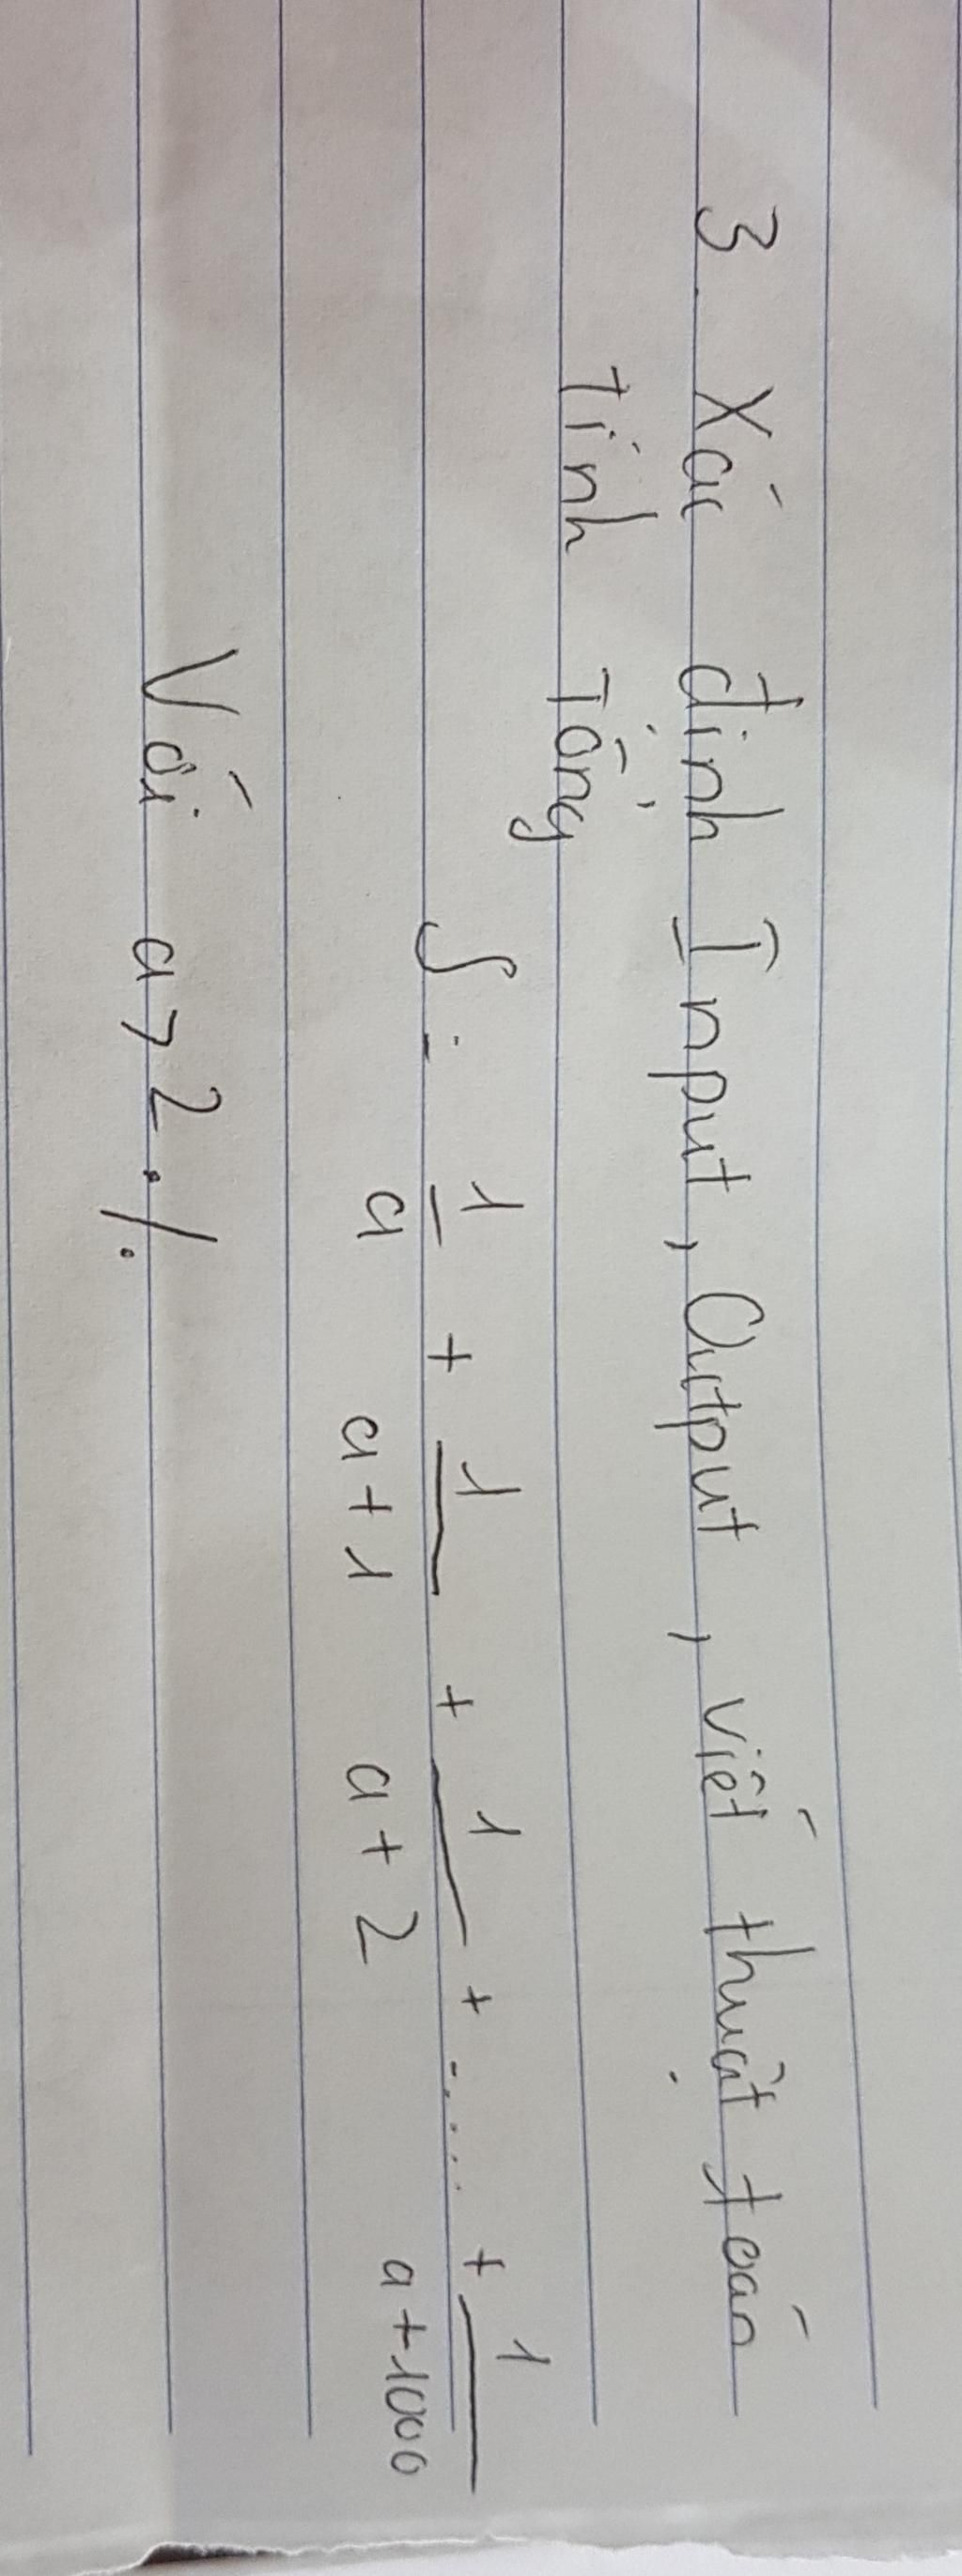 3. Xác định Input, Output, viết thuật toán
tính Tổng
S = 1/a + 1/a+1 + 1/a+2 + .... + 1/a+1000
Với a>2./.